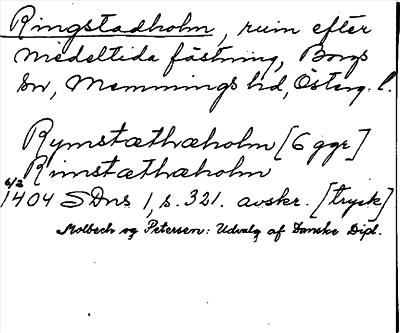 Ringstadholm, ruin efter
medeltida fästning, Borgs
sn, Memmings hd, Österg. l.
Rymstæthæholm [6 ggr]
Rimstæthæholm
6/2
1404 SDns 1, s. 321. avskr. [tryck]
Molbech og Petersen: Udvalg af Danske Dipl.